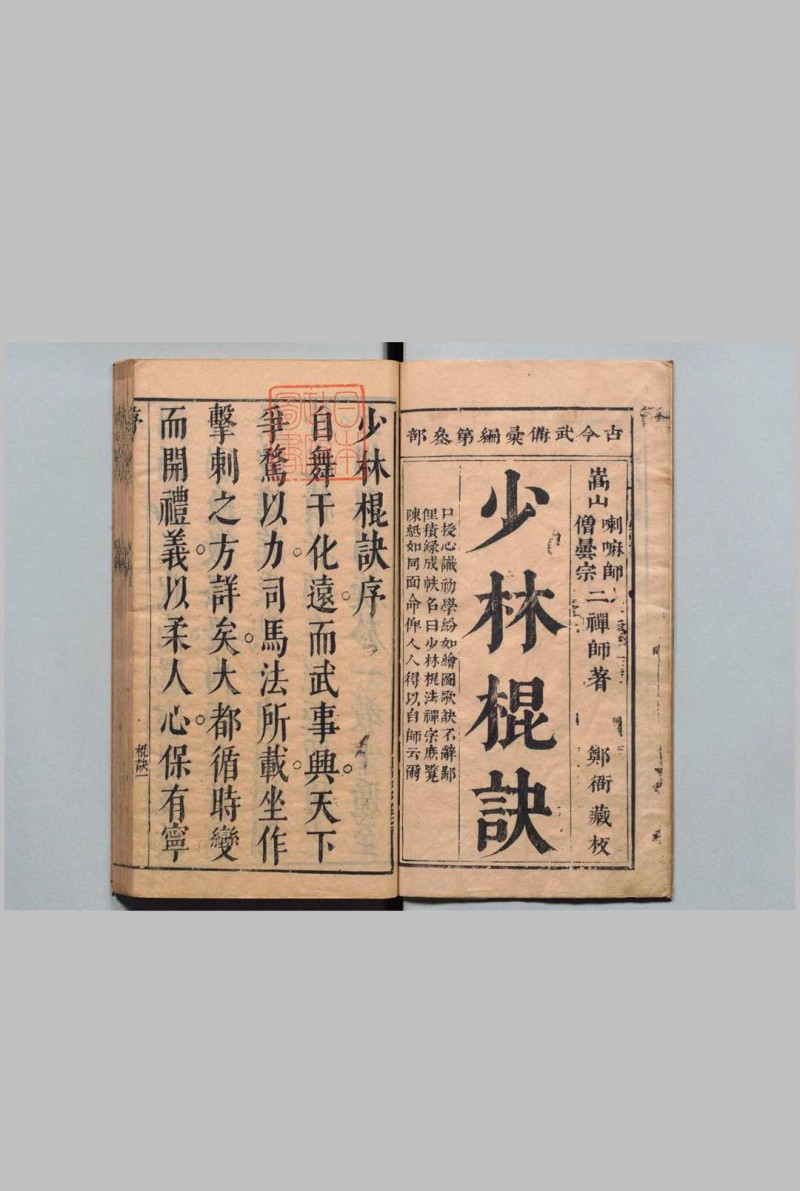 古今武備彙編第叄部
嵩山
喇嘛師
僧曇宗
二禪師著
鄭衙藏板
少林棍訣
口授心識初學紛如繪圖歌訣不辭鄙
俚積録成帙名曰少林棍法禪宗庶覽
陳紙如同面命俾人人得以自師云爾
少林棍訣序
自舞干化遠而武事興天下
爭騖以力司馬法所載坐作
擊刺之方詳矣大都循時變
而開禮義以柔人心保有寧
序
棍訣
一